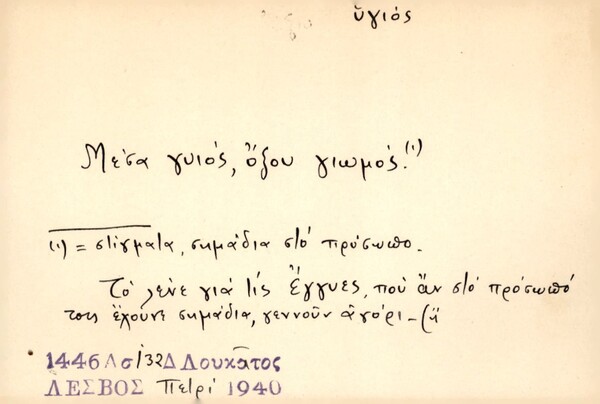 ὑγιός
Μέσα γυιός, ὄξου γιωμός.(1)
(1) = στίγματα, σημάδια στό πρόσωπο.
Τό λένε γιά τίς ἔγγυες, πού ἄν στό πρόσωπό
τους ἔχουνε σημάδια, γεννοῦν ἀγόρι - (ἤ
1446 Λσ/32Δ Λουκᾶτος
ΛΕΣΒΟΣ Πετρί 1940